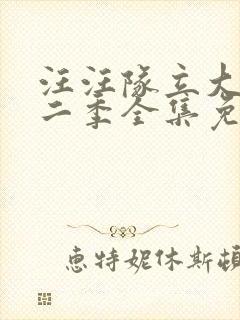 汪汪队立大
二季全集免
惠特妮休斯顿